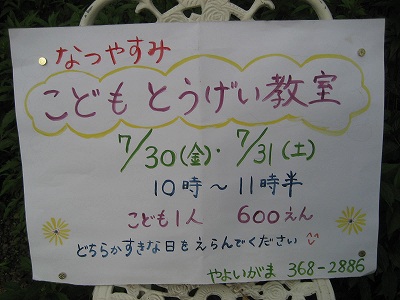 なつやすみ
こども とうげい教室
7/30(金)・7/31(土)
10時～11時半
こども1人 600えん
どちらかすきな日をえらんでください
やよいがま 368-2886